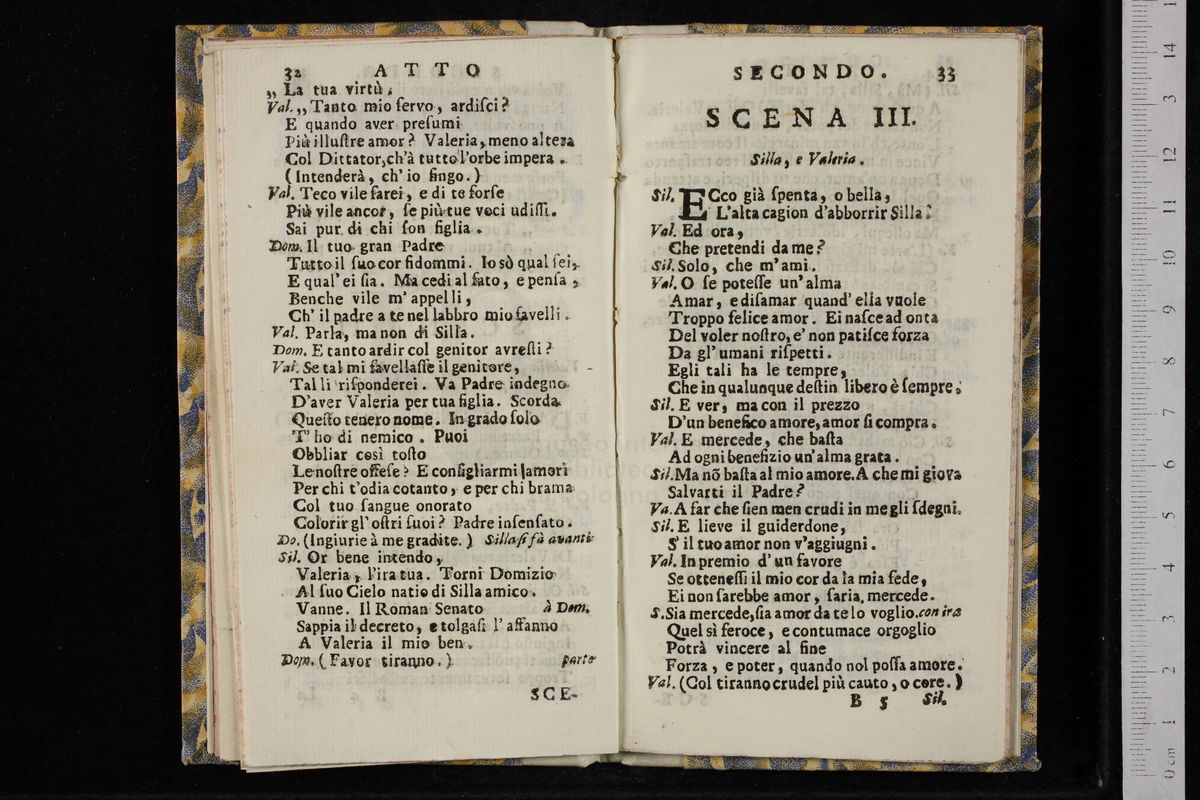 32 ATTO
„ La tua virtù.
Val. „ Tanto mio ſervo, ardiſci?
E quando aver preſumi
Più illuſtre amor? Valeria, meno altera
Col Dittator, ch'à tutto l'orbe impera.
(Intenderà, ch'io fingo.)
Val. Teco vile farei, e di te forſe
Più vile ancor, ſe più tue voci udiſſi.
Sai pur di chi ſon figlia.
Dom. Il tuo gran Padre
Tutto il ſuo cor fidommi. Io sò qual ſei,
E qual' ei ſia. Ma cedi al fato, e penſa,
Benche vile m'appelli,
Ch' il padre a te nel labbro mio favelli.
Val. Parla, ma non di Silla.
Dom. E tanto ardir col genitor avreſti?
Val. Se tal mi favellaſſe il genitore,
Tal li riſponderei. Va Padre indegno
D'aver Valeria per tua figlia. Scorda
Queſto tenero nome. In grado ſolo
T' ho di nemico. Puoi
Obbliar così toſto
Le noſtre offeſe? E conſigliarmi amori
Per chi t'odia cotanto, e per chi brama
Col tuo ſangue onorato
Colorir gl' oſtri ſuoi? Padre inſenſato.
Do. (Ingiurie à me gradite.) Silla ſi fà avanti
Sil. Or bene intendo,
Valeria, l'ira tua. Torni Domizio
Al ſuo Cielo natio di Silla amico.
Vanne. Il Roman Senato à Dom.
Sappia il decreto, e tolgaſi l' affanno
A Valeria il mio ben.
Dom. (Favor tiranno.) parte
SCE-
SECONDO. 33
SCENA III.
Silla, e Valeria.
Sil. ECco già ſpenta, o bella,
L'alta cagion d'abborrir Silla.
Val. Ed ora,
Che pretendi da me?
Sil. Solo, che m'ami.
Val. O ſe poteſſe un'alma
Amar, e diſamar quand' ella vuole
Troppo felice amor. Ei naſce ad onta
Del voler noſtro, e' non patiſce forza
Da gl'umani riſpetti.
Egli tali ha le tempre,
Che in qualunque deſtin libero è ſempre.
Sil. E ver, ma con il prezzo
D'un benefico amore, amor ſi compra.
Val. E mercede, che baſta
Ad ogni benefizio un'alma grata.
Sil. Ma nõ baſta al mio amore. A che mi giova
Salvarti il Padre?
Va. A far che ſien men crudi in me gli ſdegni.
Sil. E lieve il guiderdone,
S' il tuo amor non v'aggiugni.
Val. In premio d'un favore
Se otteneſſi il mio cor da la mia fede,
Ei non ſarebbe amor, ſaria mercede.
S. Sia mercede, ſia amor da te lo voglio. con ira
Quel sì feroce, e contumace orgoglio
Potrà vincere al fine
Forza, e poter, quando nol poſſa amore.
Val. (Col tiranno crudel più cauto, o core.)
B 5 Sil.